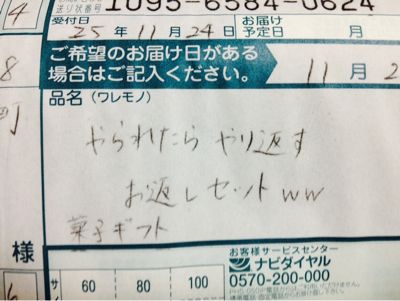 4
送り状番号 1095-6584-0624
受付日 25年11月24日 お届け予定日 月
8
ご希望のお届け日がある
場合はご記入ください。 11月2
品名(ワレモノ)
町
やられたら やり返す
お返しセットww
菓子ギフト
様
サ 60 80 100
お客様サービスセンター
ナビダイヤル
0570-200-000